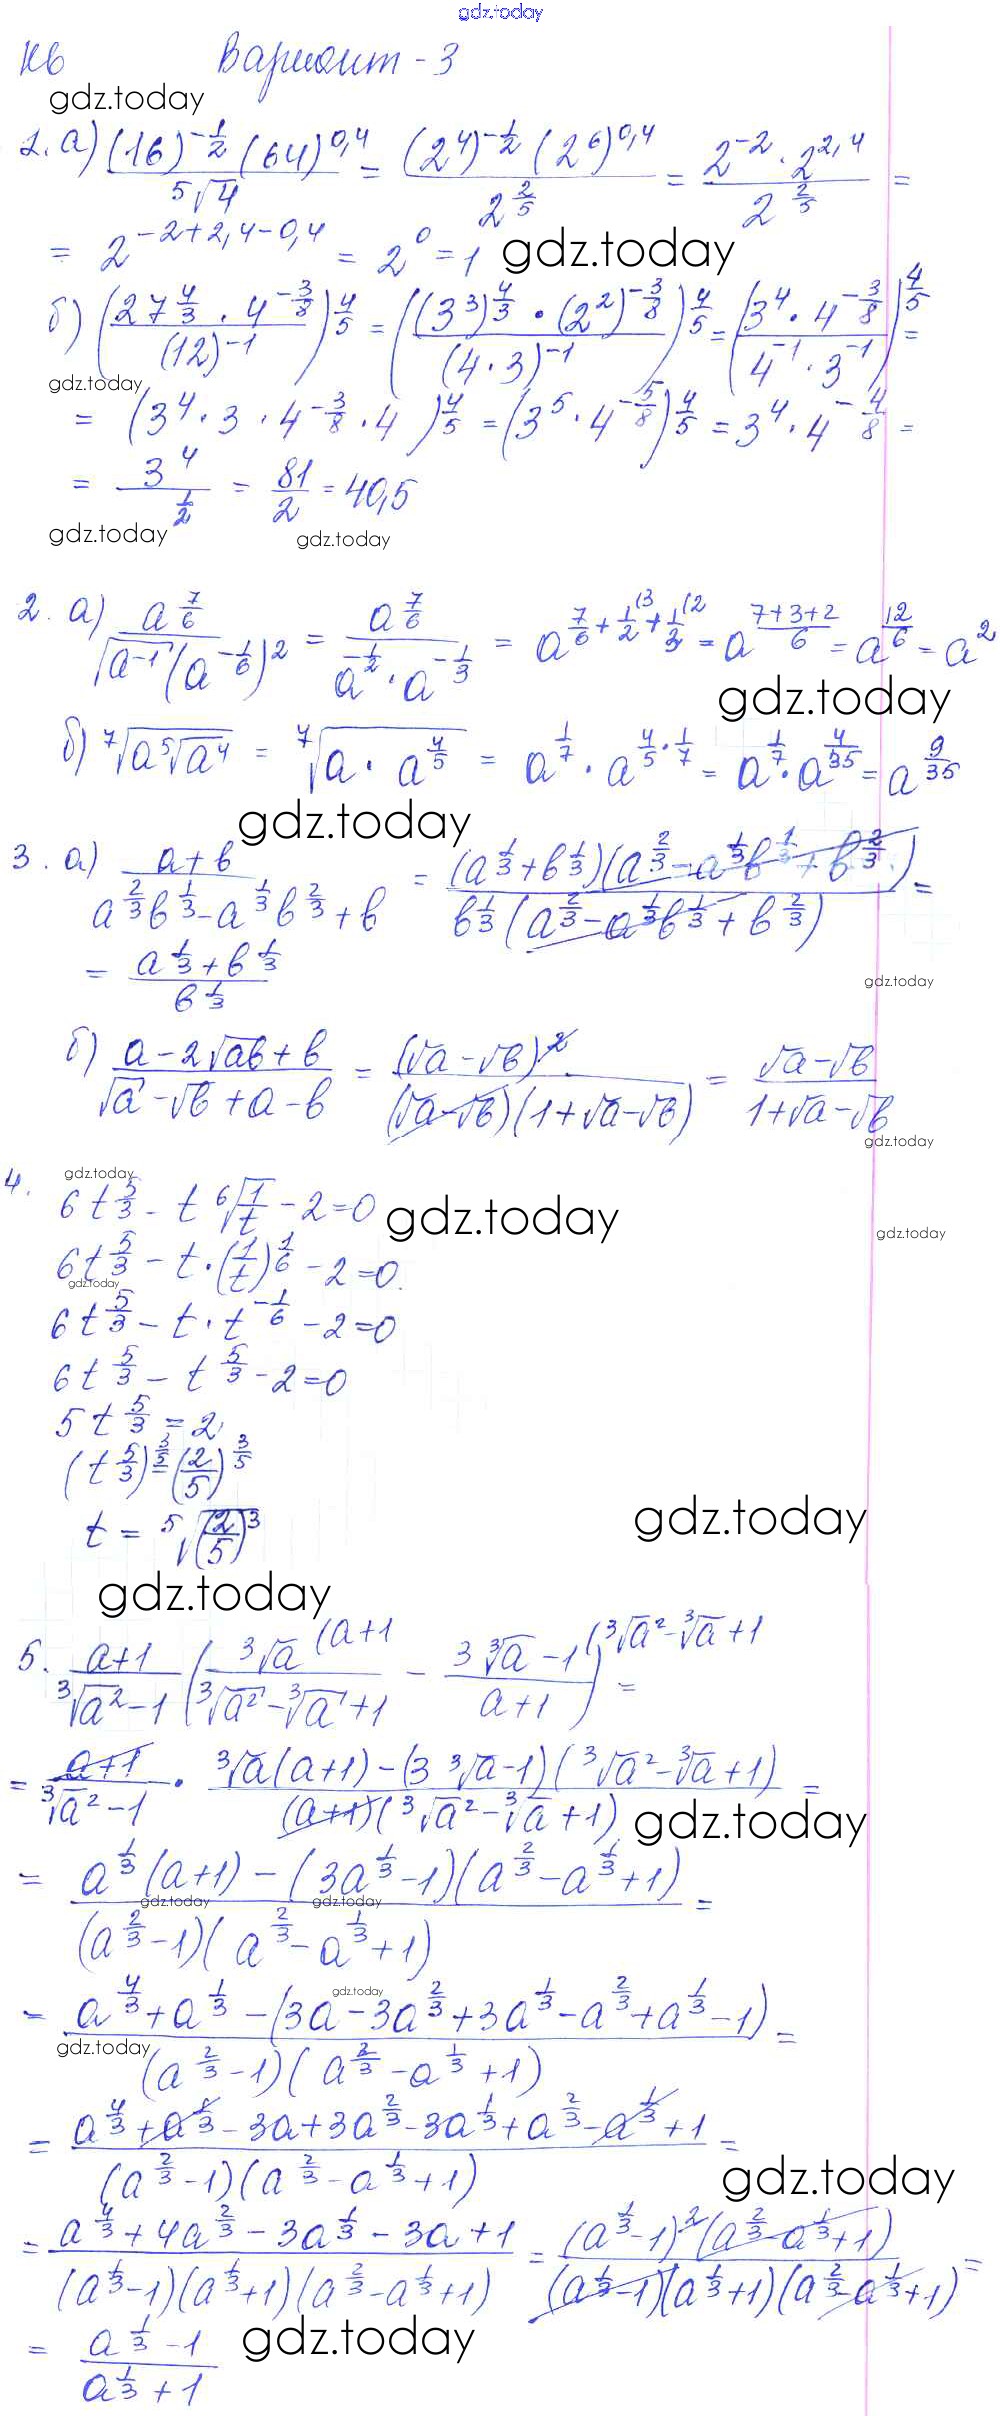 gdz.today
К6 Вариант - 3
gdz.today
1. а) ((16)^(-1/2) (64)^(0,4)) / ⁵√4 = ((2^4)^(-1/2) (2^6)^(0,4)) / 2^(2/5) = (2^(-2) · 2^(2,4)) / 2^(2/5) =
= 2^(-2+2,4-0,4) = 2^0 = 1 gdz.today
б) ((27^(4/3) · 4^(-3/8)) / (12)^(-1))^(4/5) = (((3^3)^(4/3) · (2^2)^(-3/8)) / (4·3)^(-1))^(4/5) = ((3^4 · 4^(-3/8)) / (4^(-1) · 3^(-1)))^(4/5) =
gdz.today
= (3^4 · 3 · 4^(-3/8) · 4)^(4/5) = (3^5 · 4^(-5/8))^(4/5) = 3^4 · 4^(-4/8) =
= 3^4 / (1/2) = 81/2 = 40,5
gdz.today gdz.today
2. а) a^(7/6) / (√(a^(-1)) (a^(-1/6))^2) = a^(7/6) / (a^(-1/2) · a^(-1/3)) = a^(7/6 + 1/2 (3 + 1/3 (2) = a^((7+3+2)/6) = a^(12/6) = a^2
gdz.today
б) ⁷√(a ⁵√(a^4)) = ⁷√(a · a^(4/5)) = a^(1/7) · a^(4/5 · 1/7) = a^(1/7) · a^(4/35) = a^(9/35)
gdz.today
3. а) (a+b) / (a^(2/3) b^(1/3) - a^(1/3) b^(2/3) + b) = ((a^(1/3) + b^(1/3))(a^(2/3) - a^(1/3) b^(1/3) + b^(2/3))) / (b^(1/3) (a^(2/3) - a^(1/3) b^(1/3) + b^(2/3))) =
= (a^(1/3) + b^(1/3)) / b^(1/3)
gdz.today
б) (a - 2√(ab) + b) / (√a - √b + a - b) = (√a - √b)^2 / ((√a - √b)(1 + √a - √b)) = (√a - √b) / (1 + √a - √b)
gdz.today
4. gdz.today
6t^(5/3) - t ⁶√(1/t) - 2 = 0 gdz.today
gdz.today
6t^(5/3) - t · (1/t)^(1/6) - 2 = 0
gdz.today
6t^(5/3) - t · t^(-1/6) - 2 = 0
6t^(5/3) - t^(5/3) - 2 = 0
5t^(5/3) = 2
(t^(5/3))^(3/5) = (2/5)^(3/5)
t = ⁵√((2/5)^3) gdz.today
gdz.today
5. (a+1) / (³√(a^2) - 1) (³√a (a+1 / (³√(a^2) - ³√a + 1) - (3 ³√a - 1 (³√a^2 - ³√a + 1) / (a+1)) =
= (a+1) / (³√a^2 - 1) · (³√a (a+1) - (3 ³√a - 1)(³√a^2 - ³√a + 1)) / ((a+1)(³√a^2 - ³√a + 1)) =
gdz.today
= (a^(1/3) (a+1) - (3a^(1/3) - 1)(a^(2/3) - a^(1/3) + 1)) / ((a^(2/3) - 1)(a^(2/3) - a^(1/3) + 1)) =
gdz.today gdz.today
gdz.today
= (a^(4/3) + a^(1/3) - (3a - 3a^(2/3) + 3a^(1/3) - a^(2/3) + a^(1/3) - 1)) / ((a^(2/3) - 1)(a^(2/3) - a^(1/3) + 1)) =
gdz.today
= (a^(4/3) + a^(1/3) - 3a + 3a^(2/3) - 3a^(1/3) + a^(2/3) - a^(1/3) + 1) / ((a^(2/3) - 1)(a^(2/3) - a^(1/3) + 1)) =
gdz.today
= (a^(4/3) + 4a^(2/3) - 3a^(1/3) - 3a + 1) / ((a^(1/3) - 1)(a^(1/3) + 1)(a^(2/3) - a^(1/3) + 1)) = ((a^(1/3) - 1)^2 (a^(2/3) - a^(1/3) + 1)) / ((a^(1/3) - 1)(a^(1/3) + 1)(a^(2/3) - a^(1/3) + 1)) =
= (a^(1/3) - 1) / (a^(1/3) + 1) gdz.today